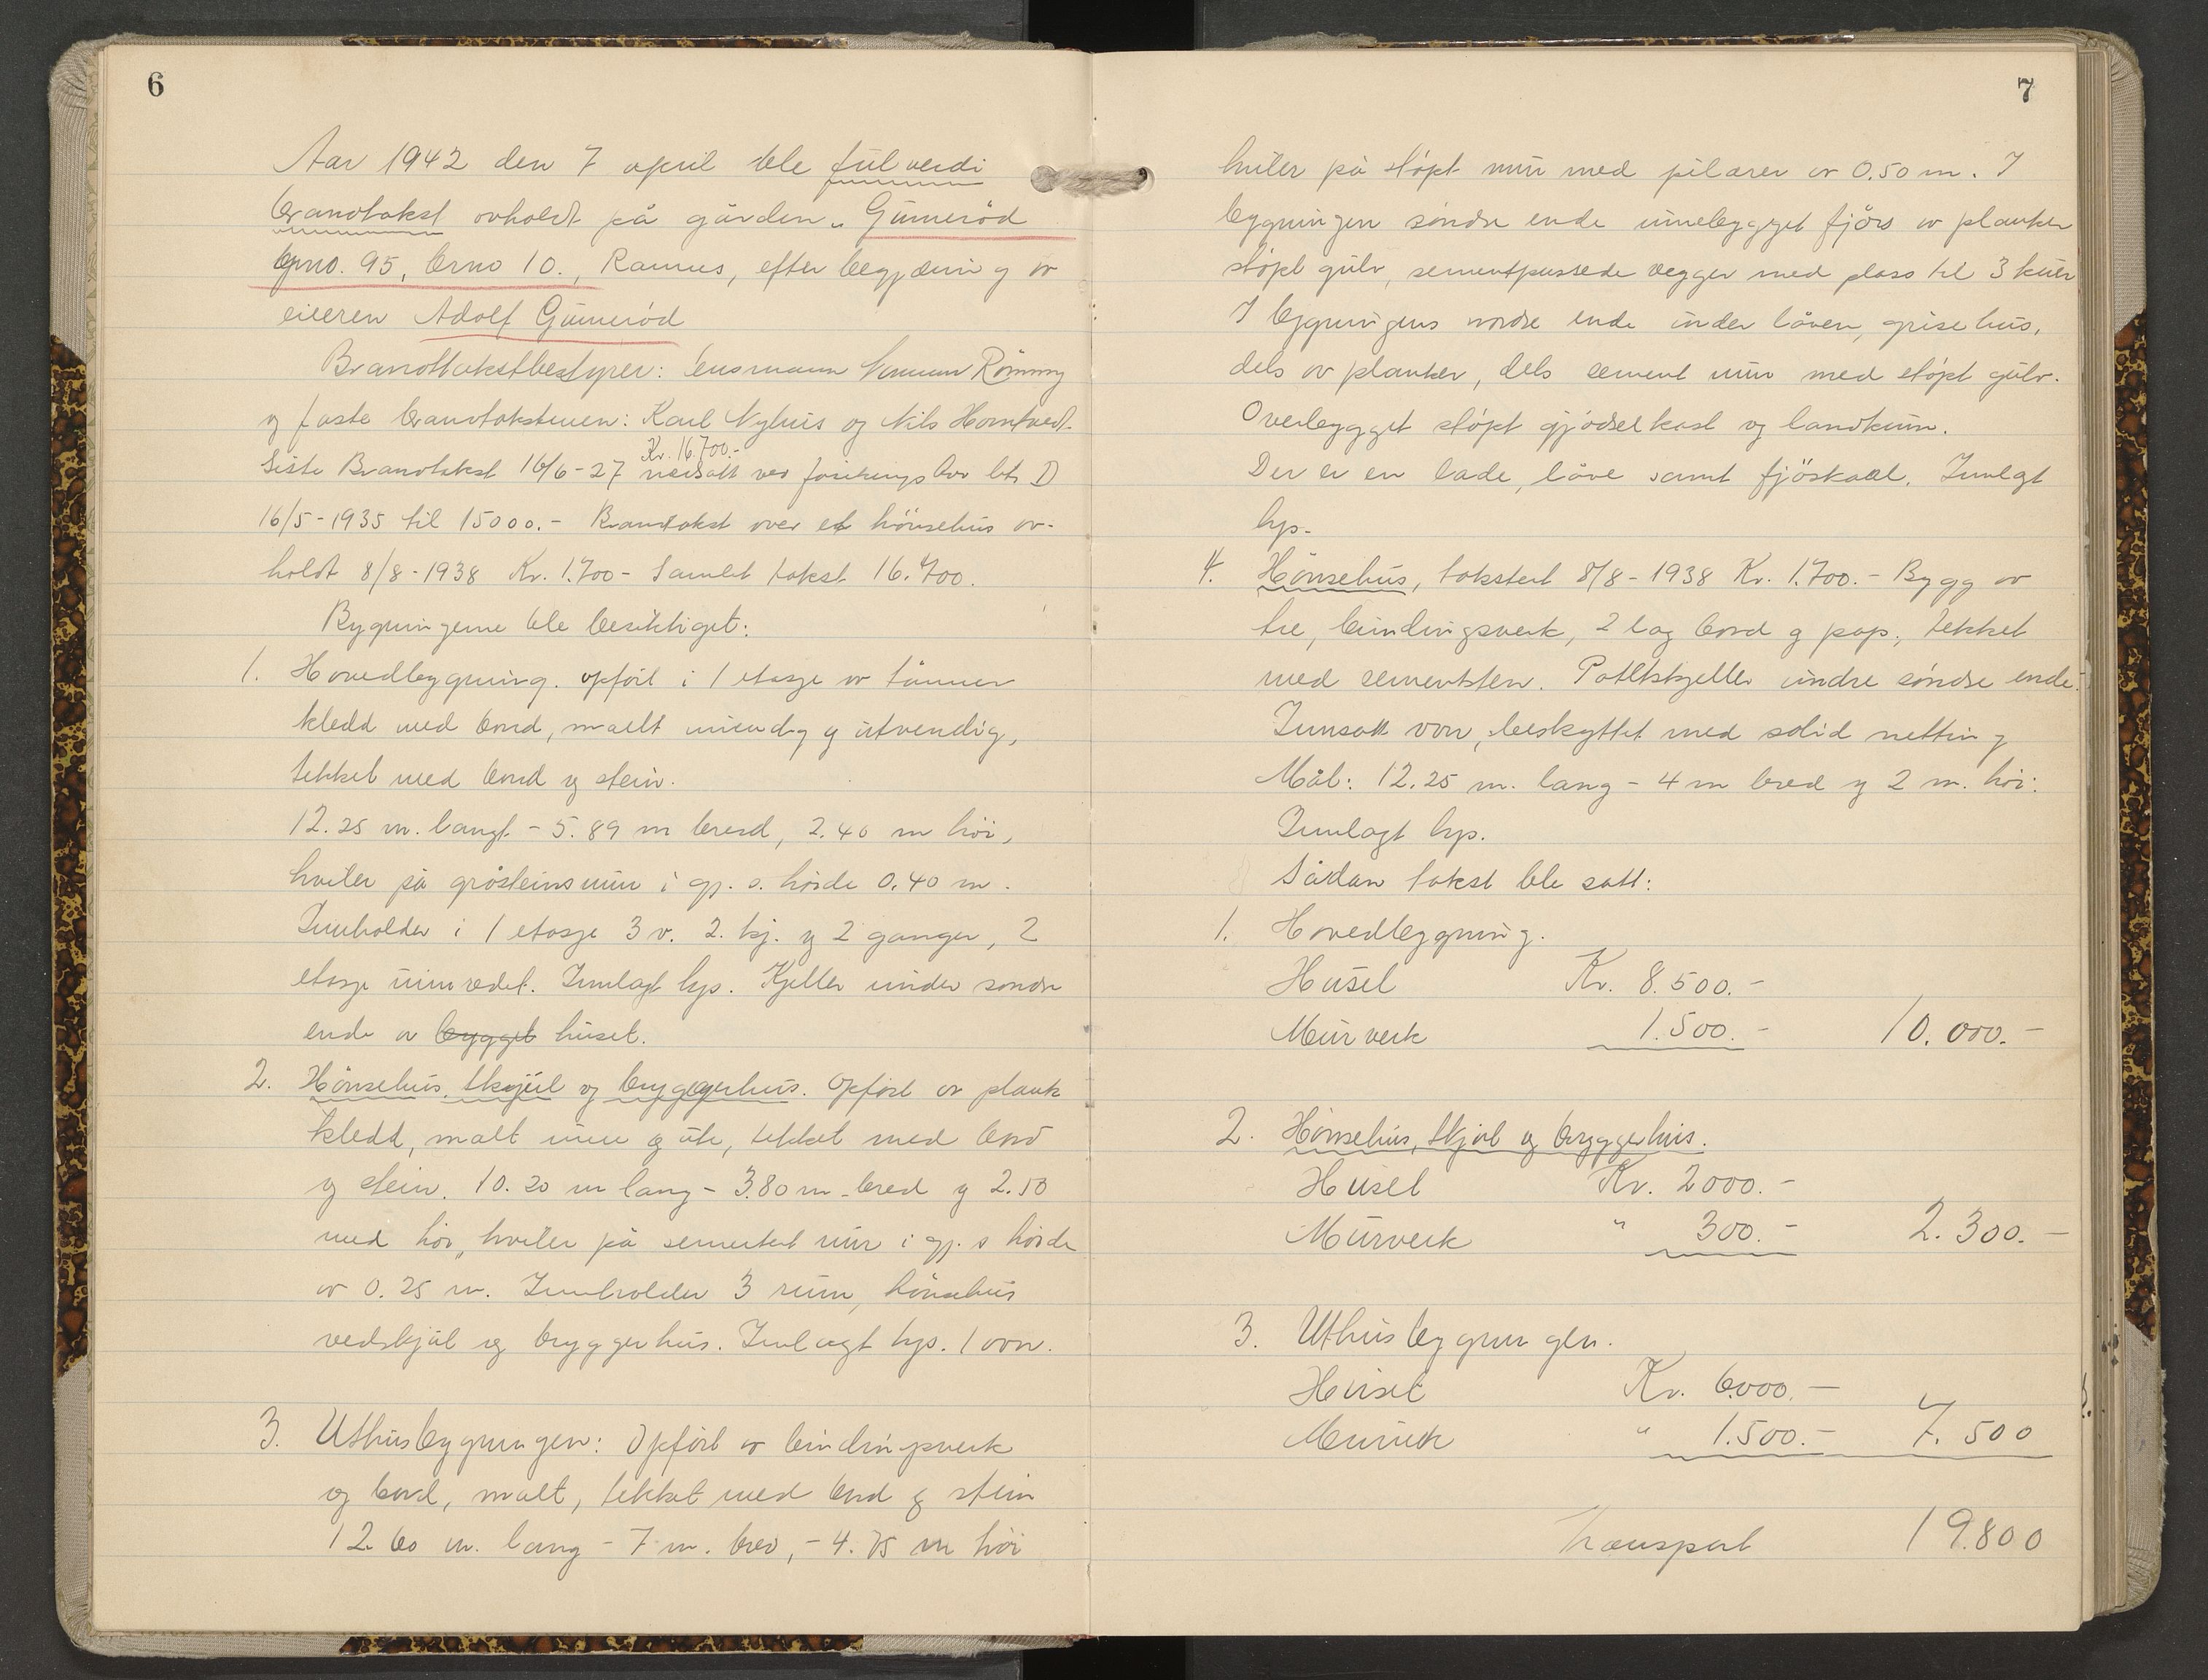 6
Aar 1942 den 7 april ble fullverdi
brandtakst avholdt på gården "Gunnerød
gno. 95, brno 10., Ramnes, efter begjæring av
eieren Adolf Gunnerød
Brandtakstbestyrer: lensmann Rømming
og faste brandtakstmenn: Karl Nyhus og Nils Horntvedt.
Kr. 16.700.-
Siste Brandtakst 16/6-27 nedsatt ved forsikrings bev. litr D
16/5-1935 til 15000.- Brandtakst over et hönsehus av-
holdt 8/8-1938 Kr. 1.700- Samlet takst 16.700.
Bygningerne ble besiktiget:
1. Hovedbygning. opført i 1 etasje av tømmer
kledd med bord, malt innvendig og utvendig,
tekket med bord og stein.
12.25 m. langt - 5.89 m bred, 2.40 m høi,
hviler på gråsteinsmur i gj. s. høide 0.40 m.
Innholder i 1 etasje 3 v. 2. kj. og 2 ganger, 2
etasje uinnredet. Innlagt lys. Kjeller under søndre
ende av bygget huset.
2. Hønsehus, skjul og bryggerhus. Opført av plank
kledd, malt inne og ute, tekket med bord
og stein. 10.20 m lang - 3.80 m bred og 2.50
med høi, hviler på sementert mur i gj. s høide
av 0.25 m. Innholder 3 rum, hønsehus
vedskjul og bryggerhus. Innlagt lys. 1 ovn.
3. Uthusbygningen: Opført av bindingsverk
og bord, malt, tekket med bord og stein
12.60 m. lang - 7 m. bred, - 4.75 m høi
7
hviler på støpt mur med pilarer av 0.50 m. I
bygningen søndre ende innebygget fjøs av planker
støpt gulv, sementpussede vegger med plass til 3 kuer
I bygningens nordre ende under låven, grisehus,
dels av planker, dels sement mur med støpt gulv.
Overbygget støpt gjødselkast og landkum.
Der er en lade, låve samt fjøskaal. Innlagt
lys.
4. Hønsehus, takstert 8/8-1938 Kr. 1.700.- Bygg av
tre, bindingsverk, 2 lag bord og pap., tekket
med sementsten. Potetkjeller undre søndre ende.
Innsatt ovn, beskyttet med solid netting
Mål: 12.25 m. lang - 4 m bred og 2 m. høi.
Innlagt lys.
Sådan takst ble satt:
1. Hovedbygning.
Huset Kr. 8.500.-
Murverk 1.500.- 10.000.-
2. Hønsehus, skjul og bryggerhus.
Huset Kr. 2000.-
Murverk " 300.- 2.300.-
3. Uthusbygningen.
Huset Kr. 6.000.-
Murverk " 1.500.- 7.500
Transport 19.800